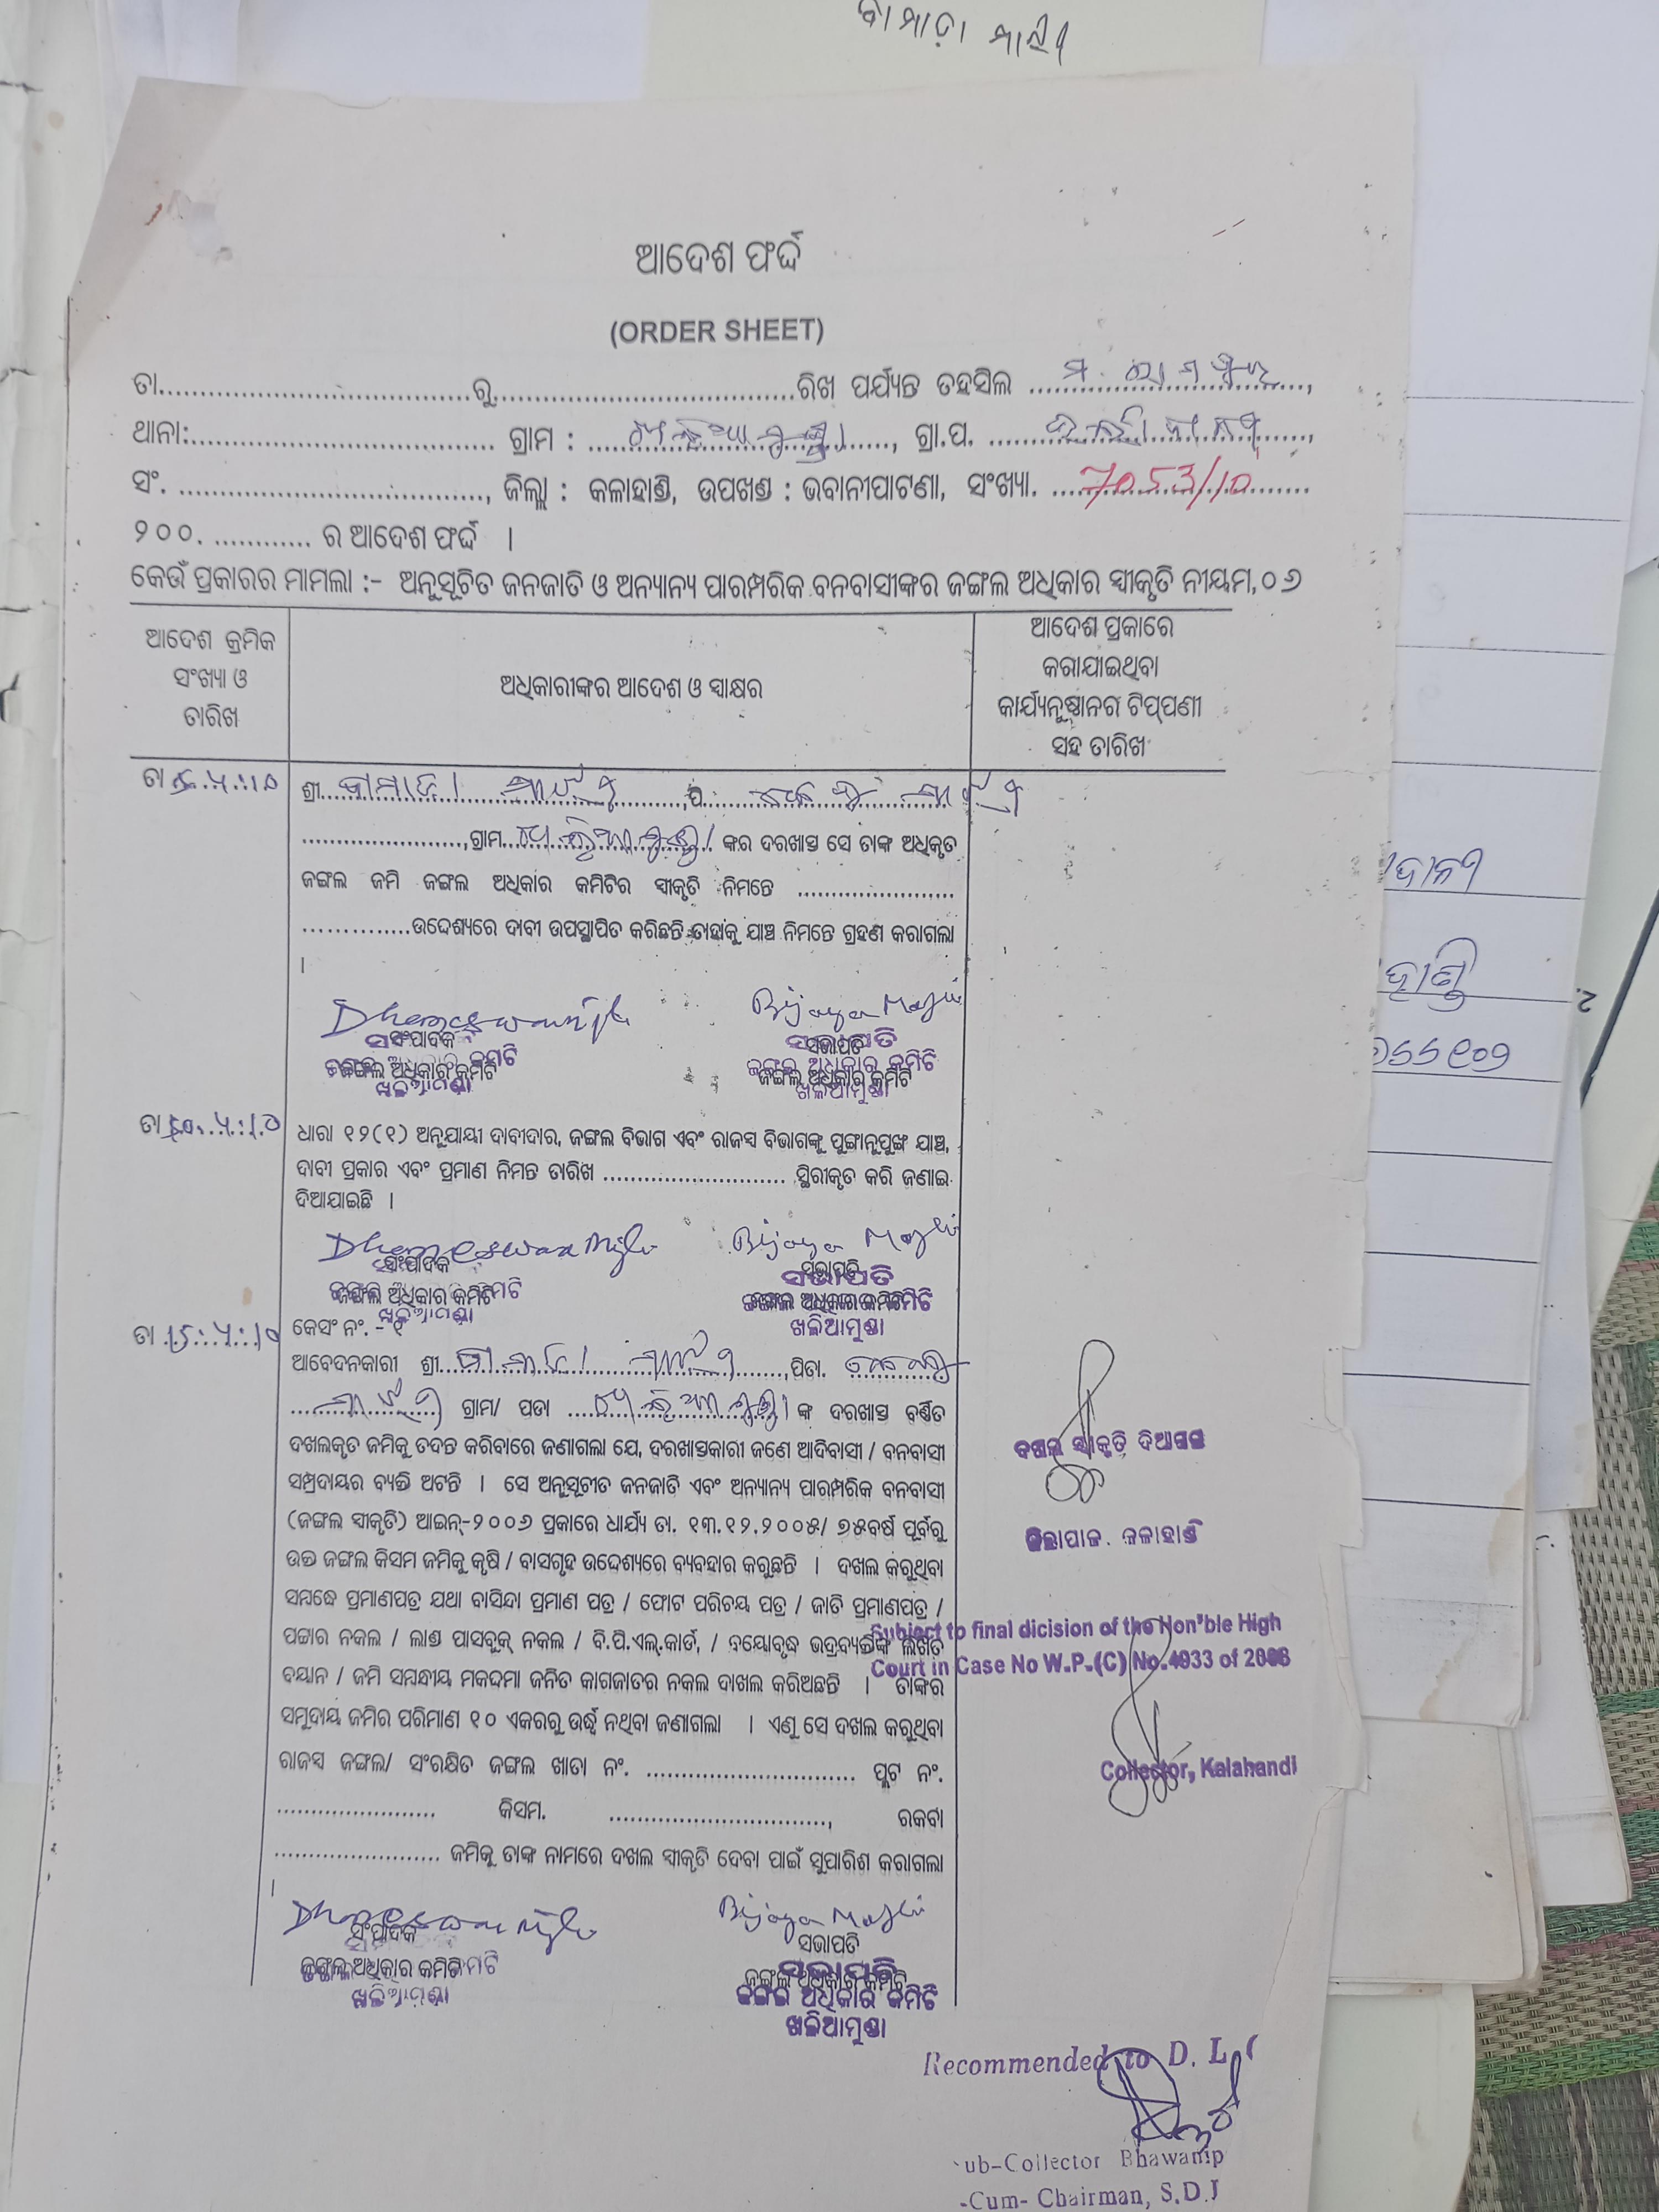 ବାମାଡ଼ା ମାଝୀ
ଆଦେଶ ଫର୍ଦ୍ଦ
(ORDER SHEET)
ତା....................................ରୁ....................................ରିଖ ପର୍ଯ୍ୟନ୍ତ ତହସିଲ ମ. ରାମପୁର,
ଥାନା:.................................... ଗ୍ରାମ : ଖଲିଆମୁଣ୍ଡା, ଗ୍ରା.ପ.
ସଂ. ...................................., ଜିଲ୍ଲା : କଳାହାଣ୍ଡି, ଉପଖଣ୍ଡ : ଭବାନୀପାଟଣା, ସଂଖ୍ୟା. 7053/10
୨୦୦. ............ ର ଆଦେଶ ଫର୍ଦ୍ଦ ।
କେଉଁ ପ୍ରକାରର ମାମଲା :- ଅନୁସୂଚିତ ଜନଜାତି ଓ ଅନ୍ୟାନ୍ୟ ପାରମ୍ପରିକ ବନବାସୀଙ୍କର ଜଙ୍ଗଲ ଅଧିକାର ସ୍ୱୀକୃତି ନୀୟମ,୦୬
ଆଦେଶ କ୍ରମିକ
ସଂଖ୍ୟା ଓ
ତାରିଖ
ଅଧିକାରୀଙ୍କର ଆଦେଶ ଓ ସ୍ୱାକ୍ଷର
ଆଦେଶ ପ୍ରକାରେ
କରାଯାଇଥିବା
କାର୍ଯ୍ୟନୁଷ୍ଠାନର ଟିପ୍ପଣୀ
ସହ ତାରିଖ
ତା
ଶ୍ରୀ ବାମାଡ଼ା ମାଝୀ ,ପି. ମାଝୀ
......................,ଗ୍ରାମ ଖଲିଆମୁଣ୍ଡା ଙ୍କର ଦରଖାସ୍ତ ସେ ତାଙ୍କ ଅଧିକୃତ
ଜଙ୍ଗଲ ଜମି ଜଙ୍ଗଲ ଅଧିକାର କମିଟିର ସ୍ୱୀକୃତି ନିମନ୍ତେ ......................
................ଉଦ୍ଦେଶ୍ୟରେ ଦାବୀ ଉପସ୍ଥାପିତ କରିଛନ୍ତି ତାହାକୁ ଯାଞ୍ଚ ନିମନ୍ତେ ଗ୍ରହଣ କରାଗଲା
।
Bijaya Majhi
ସଂପାଦକ
ଜଙ୍ଗଲ ଅଧିକାର କମିଟି
ଖଲିଆମୁଣ୍ଡା
ସଭାପତି
ଜଙ୍ଗଲ ଅଧିକାର କମିଟି
ଖଲିଆମୁଣ୍ଡା
ତା
ଧାରା ୧୨(୧) ଅନୁଯାୟୀ ଦାବୀଦାର, ଜଙ୍ଗଲ ବିଭାଗ ଏବଂ ରାଜସ୍ୱ ବିଭାଗଙ୍କୁ ପୁଙ୍ଖାନୁପୁଙ୍ଖ ଯାଞ୍ଚ,
ଦାବୀ ପ୍ରକାର ଏବଂ ପ୍ରମାଣ ନିମନ୍ତ ତାରିଖ ........................... ସ୍ଥିରୀକୃତ କରି ଜଣାଇ
ଦିଆଯାଇଛି ।
Bijaya Majhi
ସଂପାଦକ
ଜଙ୍ଗଲ ଅଧିକାର କମିଟି
ଖଲିଆମୁଣ୍ଡା
ସଭାପତି
ଜଙ୍ଗଲ ଅଧିକାର କମିଟି
ଖଲିଆମୁଣ୍ଡା
ତା
କେସଂ ନଂ. - ୧
ଆବେଦନକାରୀ ଶ୍ରୀ ବାମାଡ଼ା ମାଝୀ ,ପିତା.
ମାଝୀ ଗ୍ରାମ/ ପଡା ଖଲିଆମୁଣ୍ଡା ଙ୍କ ଦରଖାସ୍ତ ବର୍ଣ୍ଣିତ
ଦଖଲକୃତ ଜମିକୁ ତଦନ୍ତ କରିବାରେ ଜଣାଗଲା ଯେ, ଦରଖାସ୍ତକାରୀ ଜଣେ ଆଦିବାସୀ / ବନବାସୀ
ସମ୍ପ୍ରଦାୟର ବ୍ୟକ୍ତି ଅଟନ୍ତି । ସେ ଅନୁସୂଚୀତ ଜନଜାତି ଏବଂ ଅନ୍ୟାନ୍ୟ ପାରମ୍ପରିକ ବନବାସୀ
(ଜଙ୍ଗଲ ସ୍ୱୀକୃତି) ଆଇନ୍-୨୦୦୬ ପ୍ରକାରେ ଧାର୍ଯ୍ୟ ତା. ୧୩.୧୨.୨୦୦୫/ ୭୫ବର୍ଷ ପୂର୍ବରୁ
ଉକ୍ତ ଜଙ୍ଗଲ କିସମ ଜମିକୁ କୃଷି / ବାସଗୃହ ଉଦ୍ଦେଶ୍ୟରେ ବ୍ୟବହାର କରୁଛନ୍ତି । ଦଖଲ କରୁଥିବା
ସମ୍ବନ୍ଧେ ପ୍ରମାଣପତ୍ର ଯଥା ବାସିନ୍ଦା ପ୍ରମାଣ ପତ୍ର / ଫୋଟ ପରିଚୟ ପତ୍ର / ଜାତି ପ୍ରମାଣପତ୍ର /
ପଟ୍ଟାର ନକଲ / ଲାଣ୍ଡ ପାସବୁକ୍ ନକଲ / ବି.ପି.ଏଲ୍.କାର୍ଡ, / ବୟୋବୃଦ୍ଧ ଭଦ୍ରବ୍ୟକ୍ତିଙ୍କ ଲିଖିତ
ବୟାନ / ଜମି ସମ୍ବନ୍ଧୀୟ ମକଦ୍ଦମା ଜନିତ କାଗଜାତର ନକଲ ଦାଖଲ କରିଅଛନ୍ତି । ତାଙ୍କର
ସମୁଦାୟ ଜମିର ପରିମାଣ ୧୦ ଏକରରୁ ଉର୍ଦ୍ଧ୍ୱ ନଥିବା ଜଣାଗଲା । ଏଣୁ ସେ ଦଖଲ କରୁଥିବା
ରାଜସ୍ୱ ଜଙ୍ଗଲ/ ସଂରକ୍ଷିତ ଜଙ୍ଗଲ ଖାତା ନଂ. ............................... ପ୍ଲଟ ନଂ.
....................... କିସମ. ................................, ରକବା
........................ ଜମିକୁ ତାଙ୍କ ନାମରେ ଦଖଲ ସ୍ୱୀକୃତି ଦେବା ପାଇଁ ସୁପାରିଶ କରାଗଲା
।
ଦଖଲ ସ୍ୱୀକୃତି ଦିଆଗଲା
ଜିଲ୍ଲାପାଳ. କଳାହାଣ୍ଡି
Subject to final dicision of the Hon'ble High
Court in Case No W.P.(C) No.4933 of 2008
Collector, Kalahandi
Bijaya Majhi
ସଂପାଦକ
ଜଙ୍ଗଲ ଅଧିକାର କମିଟି
ଖଲିଆମୁଣ୍ଡା
ସଭାପତି
ଜଙ୍ଗଲ ଅଧିକାର କମିଟି
ଖଲିଆମୁଣ୍ଡା
Recommended to D. L
ub-Collector Bhawanip
-Cum- Chairman, S.D.